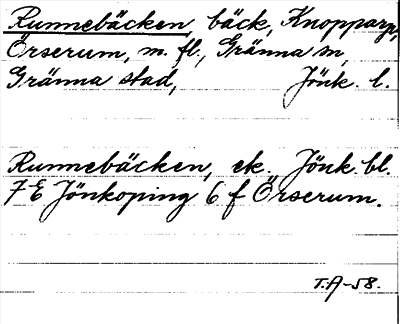 Runnebäcken, bäck, Knopparp,
Örserum, m. fl., Gränna sn,
Gränna stad, Jönk. l.
Runnebäcken, ek. Jönk. bl.
7 E Jönköping 6 f Örserum.
T.A-58.